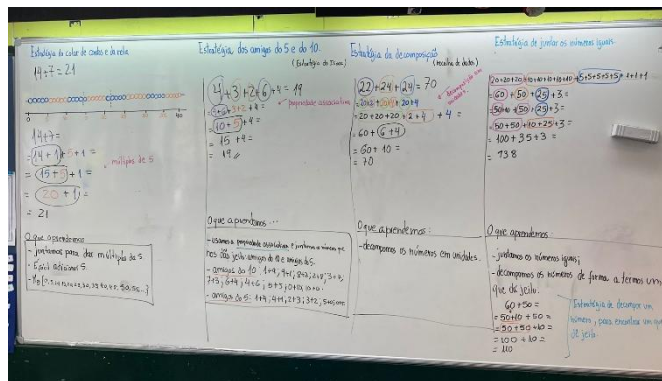 Estratégia do colar de contas e da reta.
14+7=21
14+7=
=14+1+5+1=
=15+5+1=
=20+1=
=21
múltiplo de 5
O que aprendemos
- juntamos para dar múltiplo de 5
- É fácil adicionar 5
Estratégia dos amigos do 5 e do 10.
4+3+2+6+4=19
propriedade associativa
=10+5+4=
=15+4=
=19
O que aprendemos...
- usamos a propriedade associativa e juntamos os números que
nos dão jeito: amigos do 10 e amigos do 5.
- amigos do 10:
- amigos do 5: 1+4; 4+1; 2+3; 3+2;
Estratégia da decomposição
(recolha de dados)
22+24+24=70
=20+20+20+2+4+4=
=60+6+4=
=60+10=
=70
O que aprendemos:
- decompomos os números em unidades.
Estratégia de juntar os números iguais.
20+20+20+10+10+10+10+10+5+5+5+5+5+1+1+1
=60+50+25+3=
=50+10+50+25+3=
=50+50+10+25+3=
=100+35+3=
=138
O que aprendemos:
- juntamos os números iguais;
- decompomos os números de forma a termos um
que dê jeito.
60+50=
=50+10+50=
=50+50+10=
=100+10=
=110
Estratégia de decompor um
número, para encontrar um que
dê jeito.